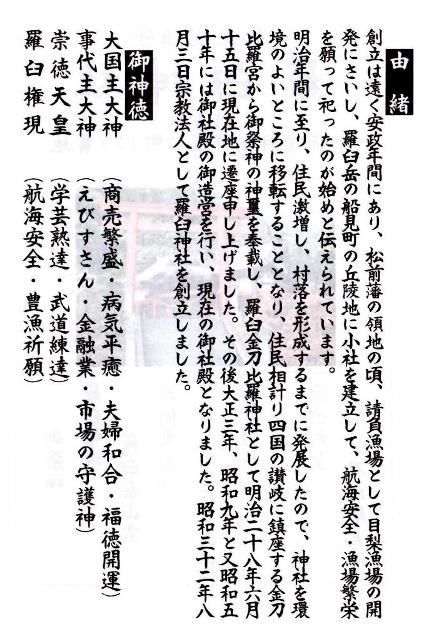 由緒
創立は遠く安政年間にあり、松前藩の領地の頃、請負漁場として目梨漁場の開
発にさいし、羅臼岳の船見町の丘陵地に小社を建立して、航海安全・漁場繁栄
を願って祀ったのが始めと伝えられています。
明治年間に至り、住民激増し、村落を形成するまでに発展したので、神社を環
境のよいところに移転することとなり、住民相計り四国の讃岐に鎮座する金刀
比羅宮から御祭神の神璽を奉載し、羅臼金刀比羅神社として明治二十八年六月
十五日に現在地に遷座申し上げました。その後大正三年、昭和九年と又昭和五
十年には御社殿の御造営を行い、現在の御社殿となりました。昭和三十二年八
月三日宗教法人として羅臼神社を創立しました。
御神徳
大国主大神 (商売繁盛・病気平癒・夫婦和合・福徳開運)
事代主大神 (えびすさん・金融業・市場の守護神)
崇徳天皇 (学芸熟達・武道練達)
羅臼権現 (航海安全・豊漁祈願)